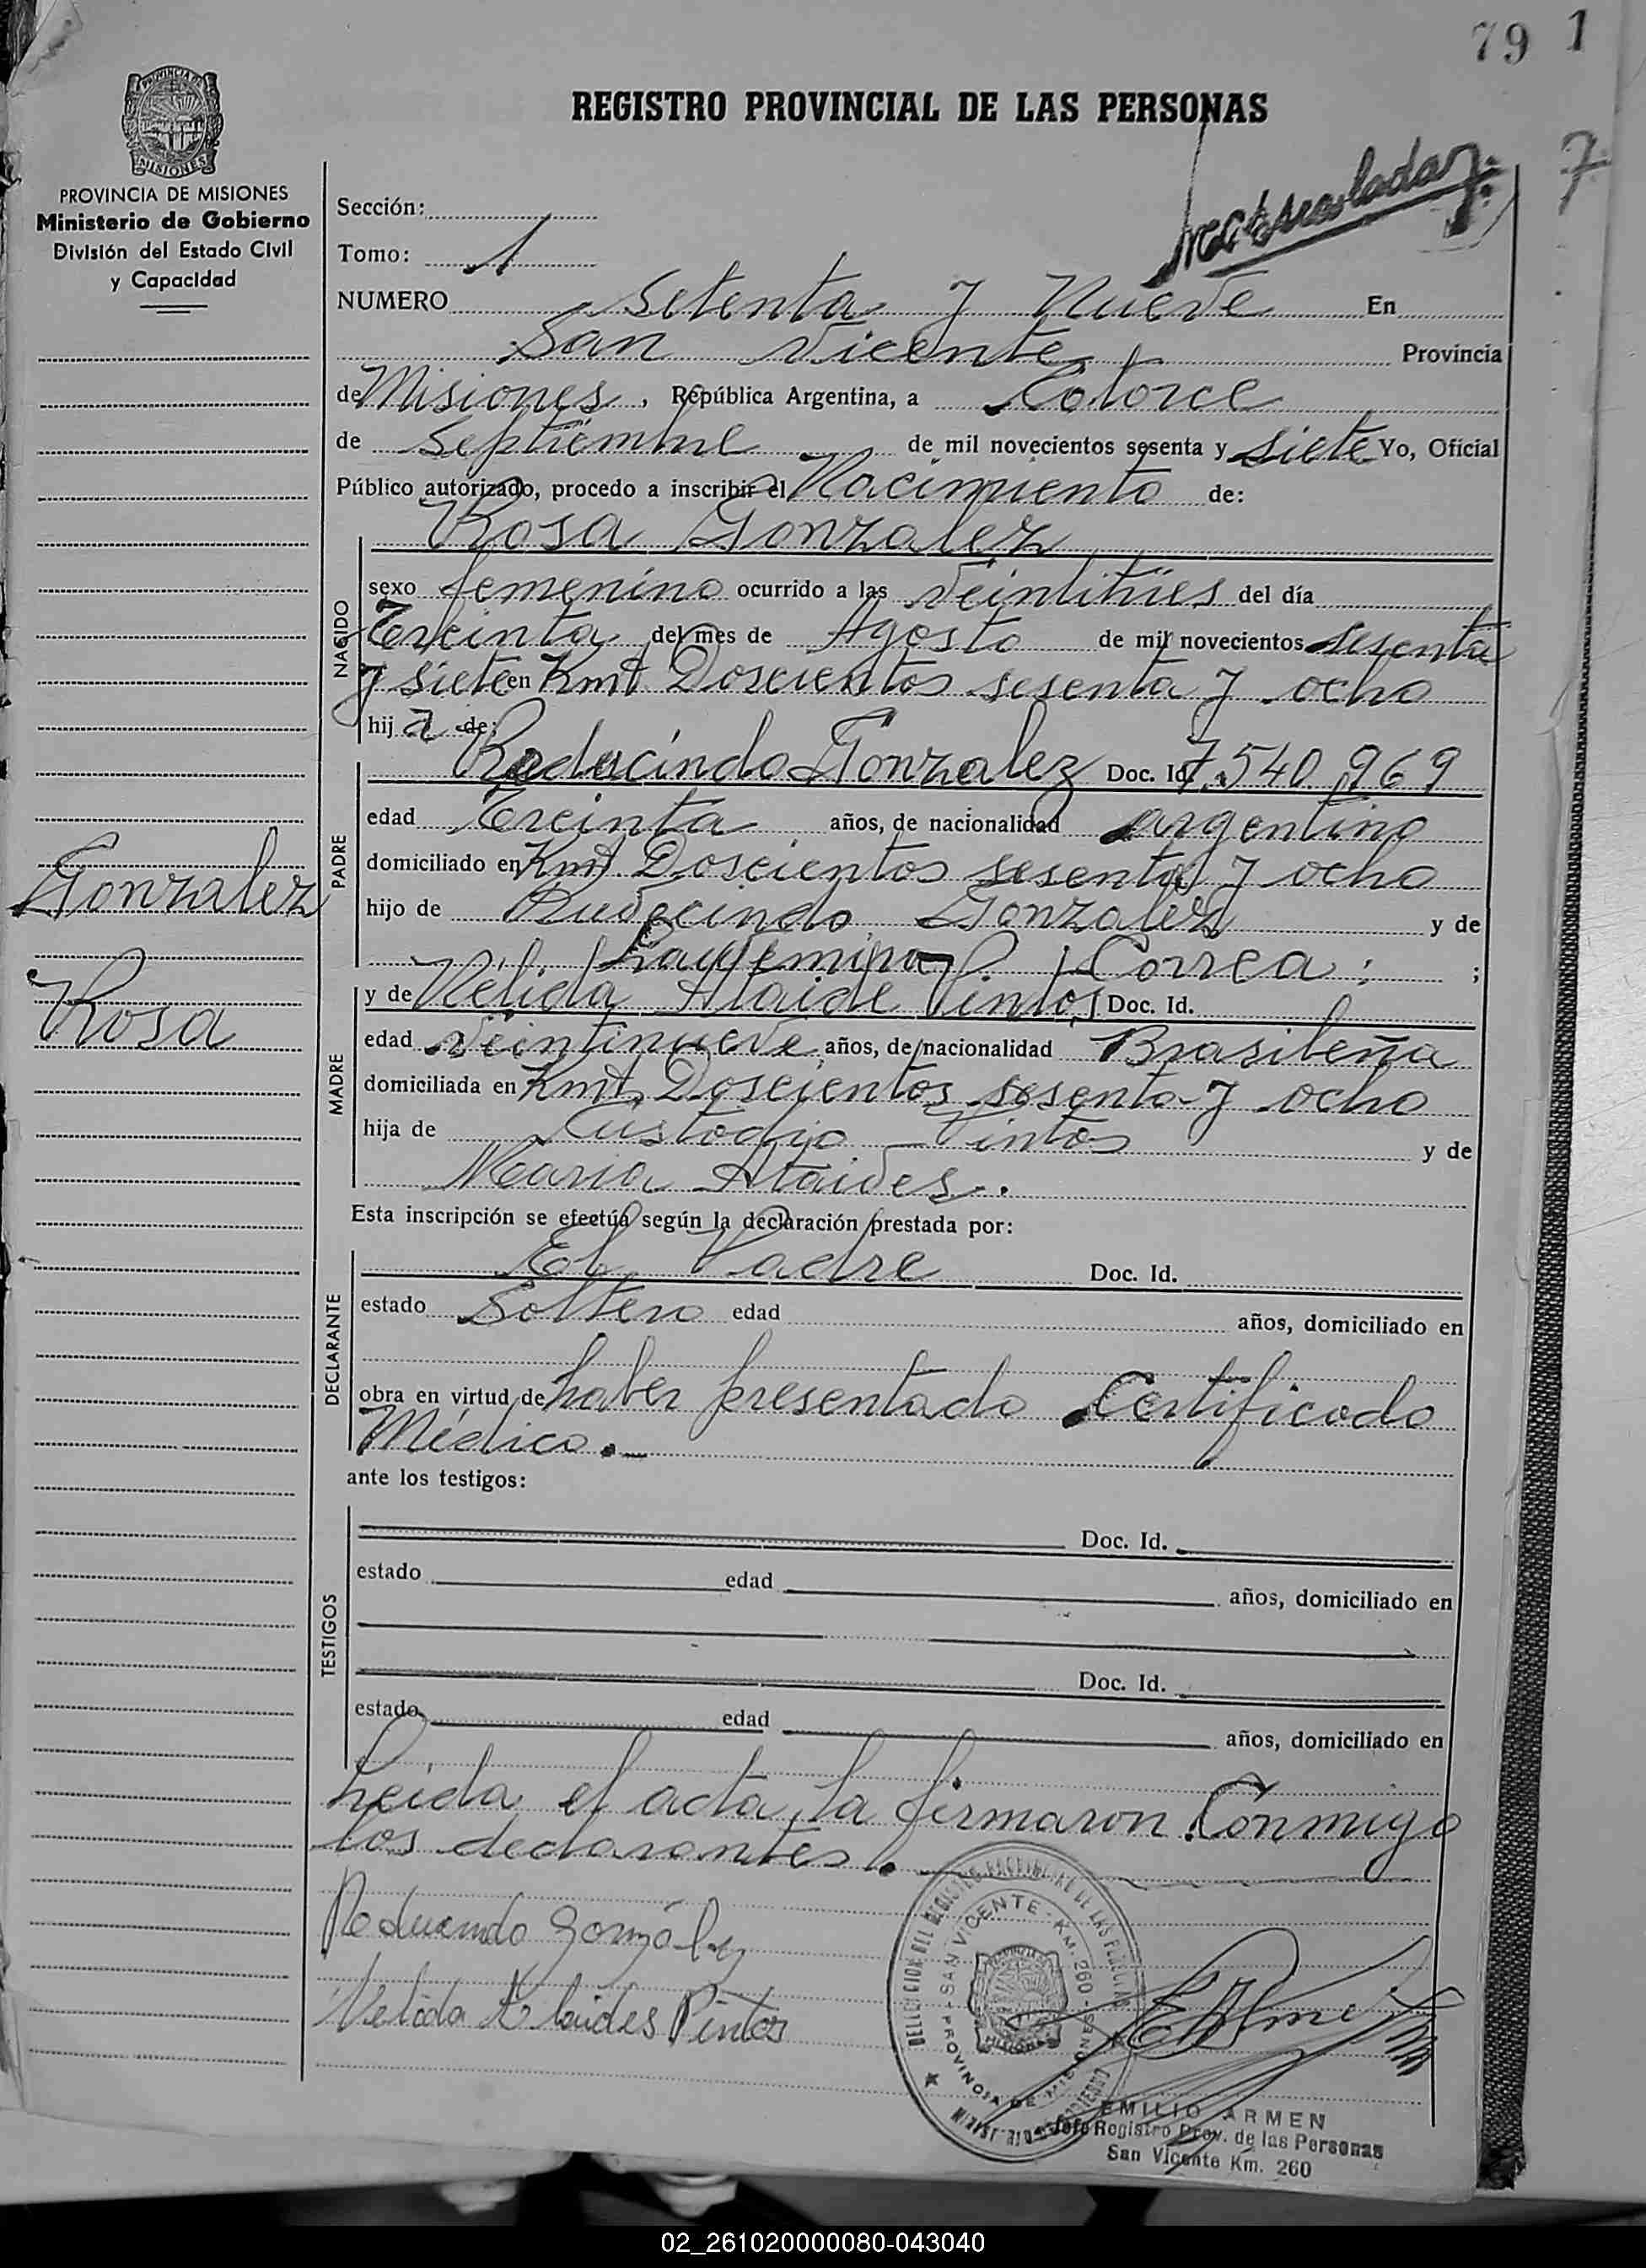 79 1
REGISTRO PROVINCIAL DE LAS PERSONAS
7
MISIONES
PROVINCIA DE MISIONES
Ministerio de Gobierno
División del Estado Civil
y Capacidad
Sección:
Tomo: 1
NUMERO Setenta y Nueve En
San Vicente Provincia
de Misiones, República Argentina, a Catorce
de Septiembre de mil novecientos sesenta y siete Yo, Oficial
Público autorizado, procedo a inscribir el Nacimiento de:
Rosa Gonzalez
NACIDO
sexo femenino ocurrido a las veintitries del día
Treinta del mes de Agosto de mil novecientos sesenta
y siete en Kmt Doscientos sesenta y ocho
hija de:
PADRE
Raducindo Gonzalez Doc. Id. 7.540.969
edad Treinta años, de nacionalidad argentino
domiciliado en Kmt Doscientos sesenta y ocho
hijo de Gonzalez y de
Correa ;
Gonzalez
Rosa
MADRE
y de Nélida Ataide Pintos Doc. Id.
edad veintinueve años, de nacionalidad Brasileña
domiciliada en Kmt. Doscientos sesenta y ocho
hija de Custodio Pintos y de
Maria Ataides.
Esta inscripción se efectúa según la declaración prestada por:
DECLARANTE
El Padre Doc. Id.
estado Soltero edad años, domiciliado en
obra en virtud de haber presentado Certificado
Médico.
ante los testigos:
TESTIGOS
Doc. Id.
estado edad años, domiciliado en
Doc. Id.
estado edad años, domiciliado en
Leida el acta, la firmaron Conmigo
los declarantes.
Gonzalez
Nelida Ataides Pintos
SAN VICENTE - KM. 260 - PROVINCIA DE MISIONES
EMILIO ARMEN
Jefe Registro Prov. de las Personas
San Vicente Km. 260
02_261020000080-043040